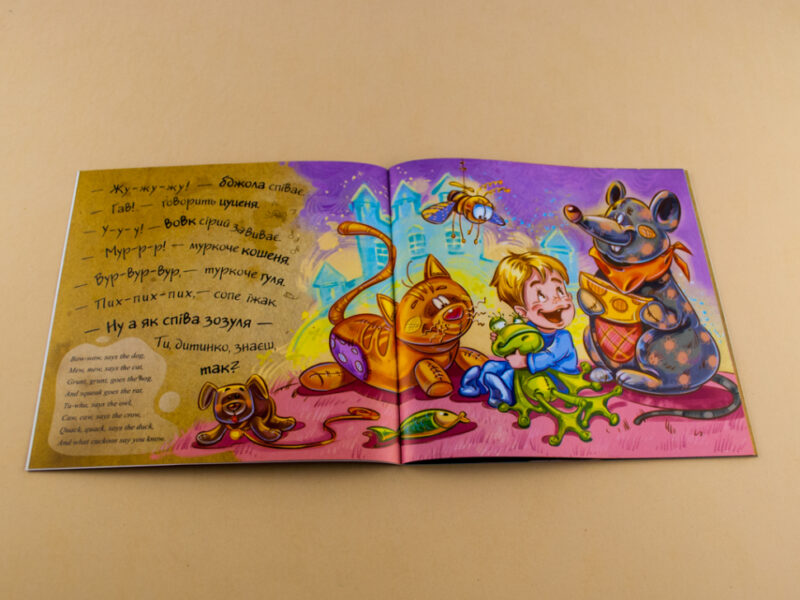 — Жу-жу-жу! — бджола співає.
— Гав! — говорить цуценя.
— У-у-у! — вовк сірий завиває.
— Мур-р-р! — муркоче кошеня.
— Вур-вур-вур, — туркоче гуля.
— Пих-пих-пих, — сопе їжак.
— Ну а як співа зозуля —
Ти, дитинко, знаєш,
так?
Bow-wow, says the dog,
Mew, mew, says the cat,
Grunt, grunt, goes the hog,
And squeak goes the rat.
Tu-whu, says the owl,
Caw, caw, says the crow,
Quack, quack, says the duck,
And what cuckoos say you know.